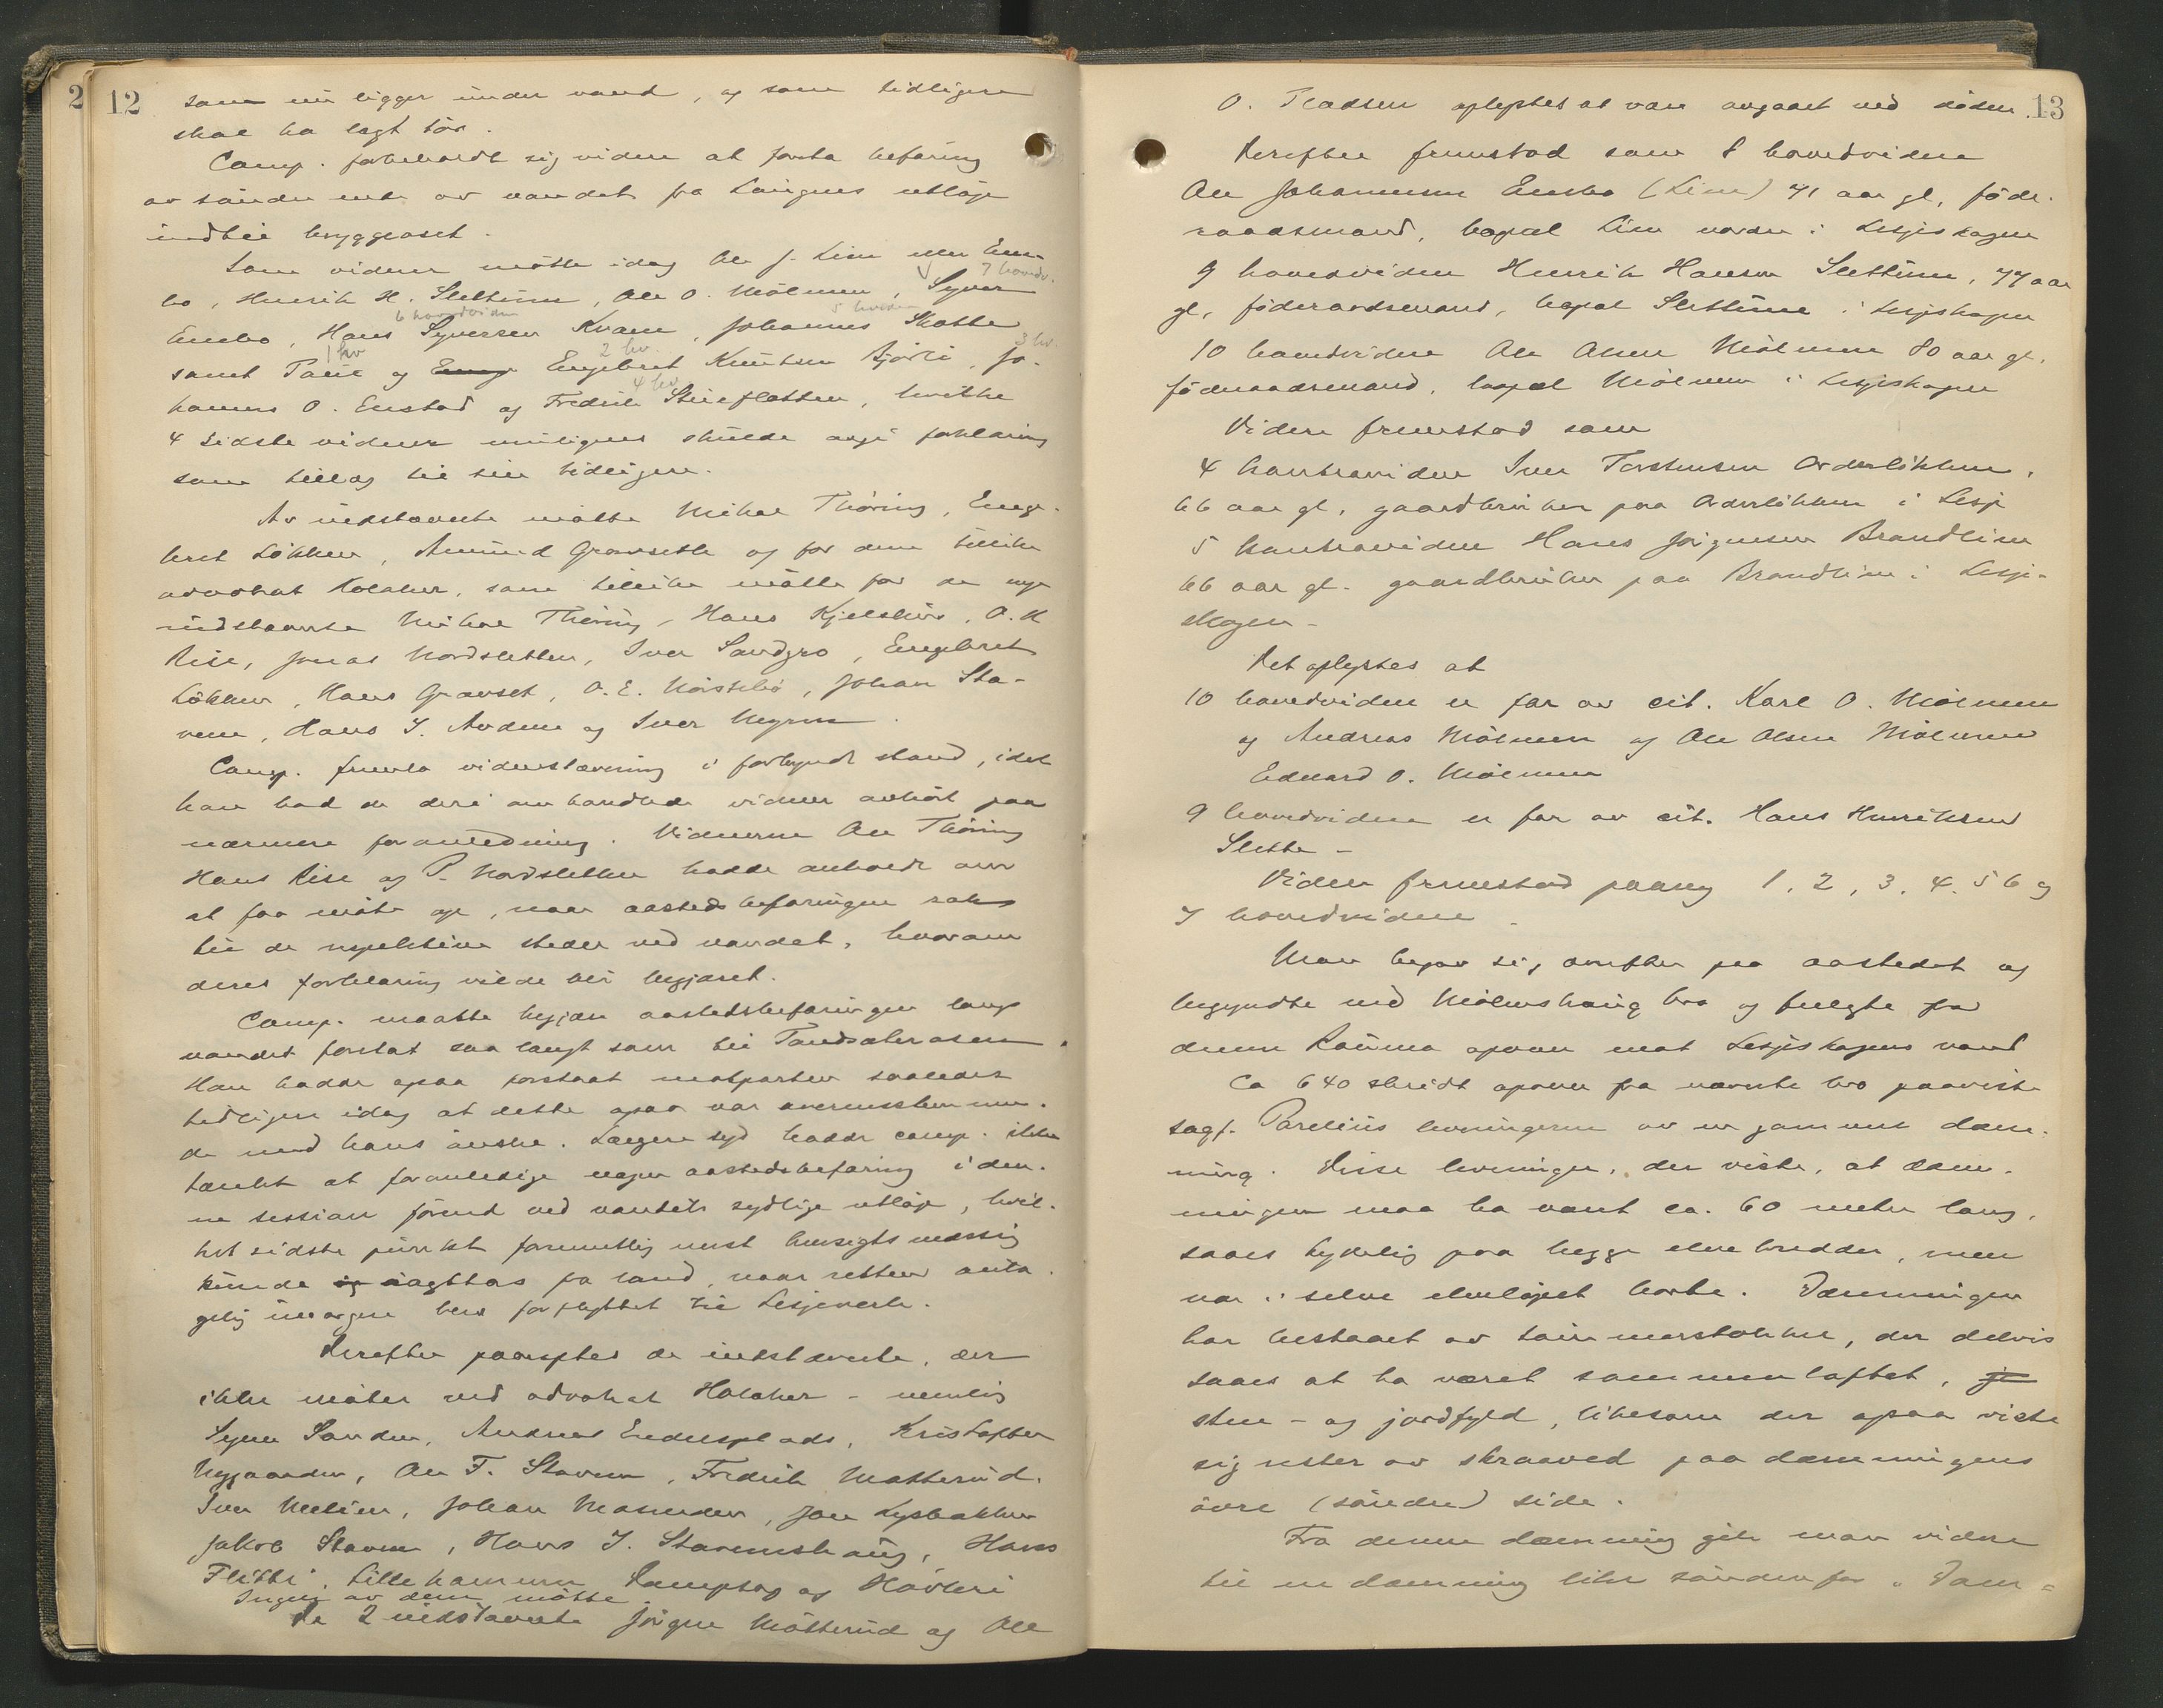 2
12
som nu ligger under vand, og som tidligere
skal ha lagt tör.
Comp. forbeholdt sig videre at foreta befaring
av söndre ende av vandet fra Laagens utlöp
indtil bryggeaset.
Som vidner mötte idag Ole J. Lien eller Ens-
7 hovedv.
bo, Henrik H. Slettune, Ole O. Mölmen, Syver
6 hovedvidne 5 hvidne
Ensbo, Hans Syversen Kvam, Johannes Skotte
1 hv 2 hv. 3 hv.
samt Paul og Engebret Knutsen Bjorli, Jo-
4 hv
hannes O. Enstad og Fredrik Stueflotten, hvilke
4 sidste vidner muligens skulde avgi forklaring
som tillæg til sin tidligere.
Av indstevnte mötte Mikal Thöring, Enge-
bret Lökken, Amund Gravseth og for dem tillike
advokat Holaker, som tillike mötte for de nye
indstevnte Mikal Thöring, Hans Kjelshus, O. K
Rise, Jonas Nordsletten, Iver Sandgro, Engebret
Lökken, Hans Gravset, O. E. Norstebö, Johan Sta-
vem, Hans I. Avdem og Iver Nygren.
Comp. fremla vidnestevning i forkyndt stand, idet
han bad de deri omhandlede vidner avhört paa
nærmere foranledning. Vidnerne Ole Thöring
Hans Rise og P. Nordsletten hadde anholdt om
at faa möte op, naar aastedsbefaringen rak
til de respektive steder ved vandet, hvorom
deres forklaring vilde bli begjæret.
Comp. maatte begjære aastedsbefaringen langs
vandet fortsat saa langt som til Tandsæterosen.
Han hadde ogsaa forstaat motparten saaledes
tidligere idag at dette ogsaa var overensstemmen-
de med hans önske. Længere syd hadde comp. ikke
tænkt at foranledige nogen aastedsbefaring i den-
ne session förend ved vandets sydlige utlöp, hvil-
ket sidste punkt formentlig mest hensigtsmæssig
kunde iagttas fra land, naar retten anta-
gelig imorgen blev forflyttet til Lesjeverk.
Derefter paaroptes de indstevnte, der
ikke möter ved advokat Holaker - nemlig
Syver Sanden, Andreas Endresplads, Kristoffer
Nygaarden, Ole T. Stavem, Fredrik Motterud,
Iver Melien, Johan Mosenden, Jon Lysbakken
Jakob Stavem, Hans J. Stavemshaug, Hans
Flitti, Lillehammer Dampsag og Hövleri
Ingen av dem mötte.
De 2 indstevnte Jörgen Motterud og Ole
13
O. Pladsen oplystes at være avgaaet ved döden.
Derefter fremstod som 8 hovedvidne
Ole Johannesen Ensbo (Lien) 71 aar gl, föde-
raadsmand, bopæl Lien norden i Lesjeskogen
9 hovedvidne Henrik Hansen Slettune, 77 aar
gl, föderaadsmand, bopæl Slettune i Lesjeskogen
10 hovedvidne Ole Olsen Mölmen 80 aar gl.
föderaadsmand, bopæl Mölmen i Lesjeskogen
Videre fremstod som
4 kontravidne Iver Torstensen Orderlökken,
66 aar gl, gaardbruker paa Orderlökken i Lesje
5 kontravidne Hans Jörgensen Brandlien
66 aar gl. gaardbruker paa Brandlien i Lesje-
skogen -
Det oplystes at
10 hovedvidne er far av cit. Karl O. Mölmen
og Andreas Mölmen og Ole Olsen Mölmen
Edvard O. Mölmen
9 hovedvidne er far av cit. Hans Henriksen
Slette -
Videre fremstod paany 1, 2, 3, 4, 5 6 og
7 hovedvidne -
Man begav sig derefter paa aastedet og
begyndte ved Mölmshaug bro og fulgte fra
denne Rauma opover mot Lesjeskogens vand
Ca 640 skridt opover fra nævnte bro paaviste
sagf. Parelius levningerne av en gammel dæm-
ning. Disse levninger, der viste, at dæm-
ningen maa ha været ca. 60 meter lang,
saaes tydelig paa begge elvebredder, men
var i selve elvelöpet borte. Dæmningen
har bestaaet av tömmerstokker, der delvis
saaes at ha været sammenlaftet,
sten- og jordfyld, likesom der ogsaa viste
sig rester av skraaved paa dæmningens
övre (söndre) side.
Fra denne dæmning gik man videre
til en dæmning like söndenfor "Dam-